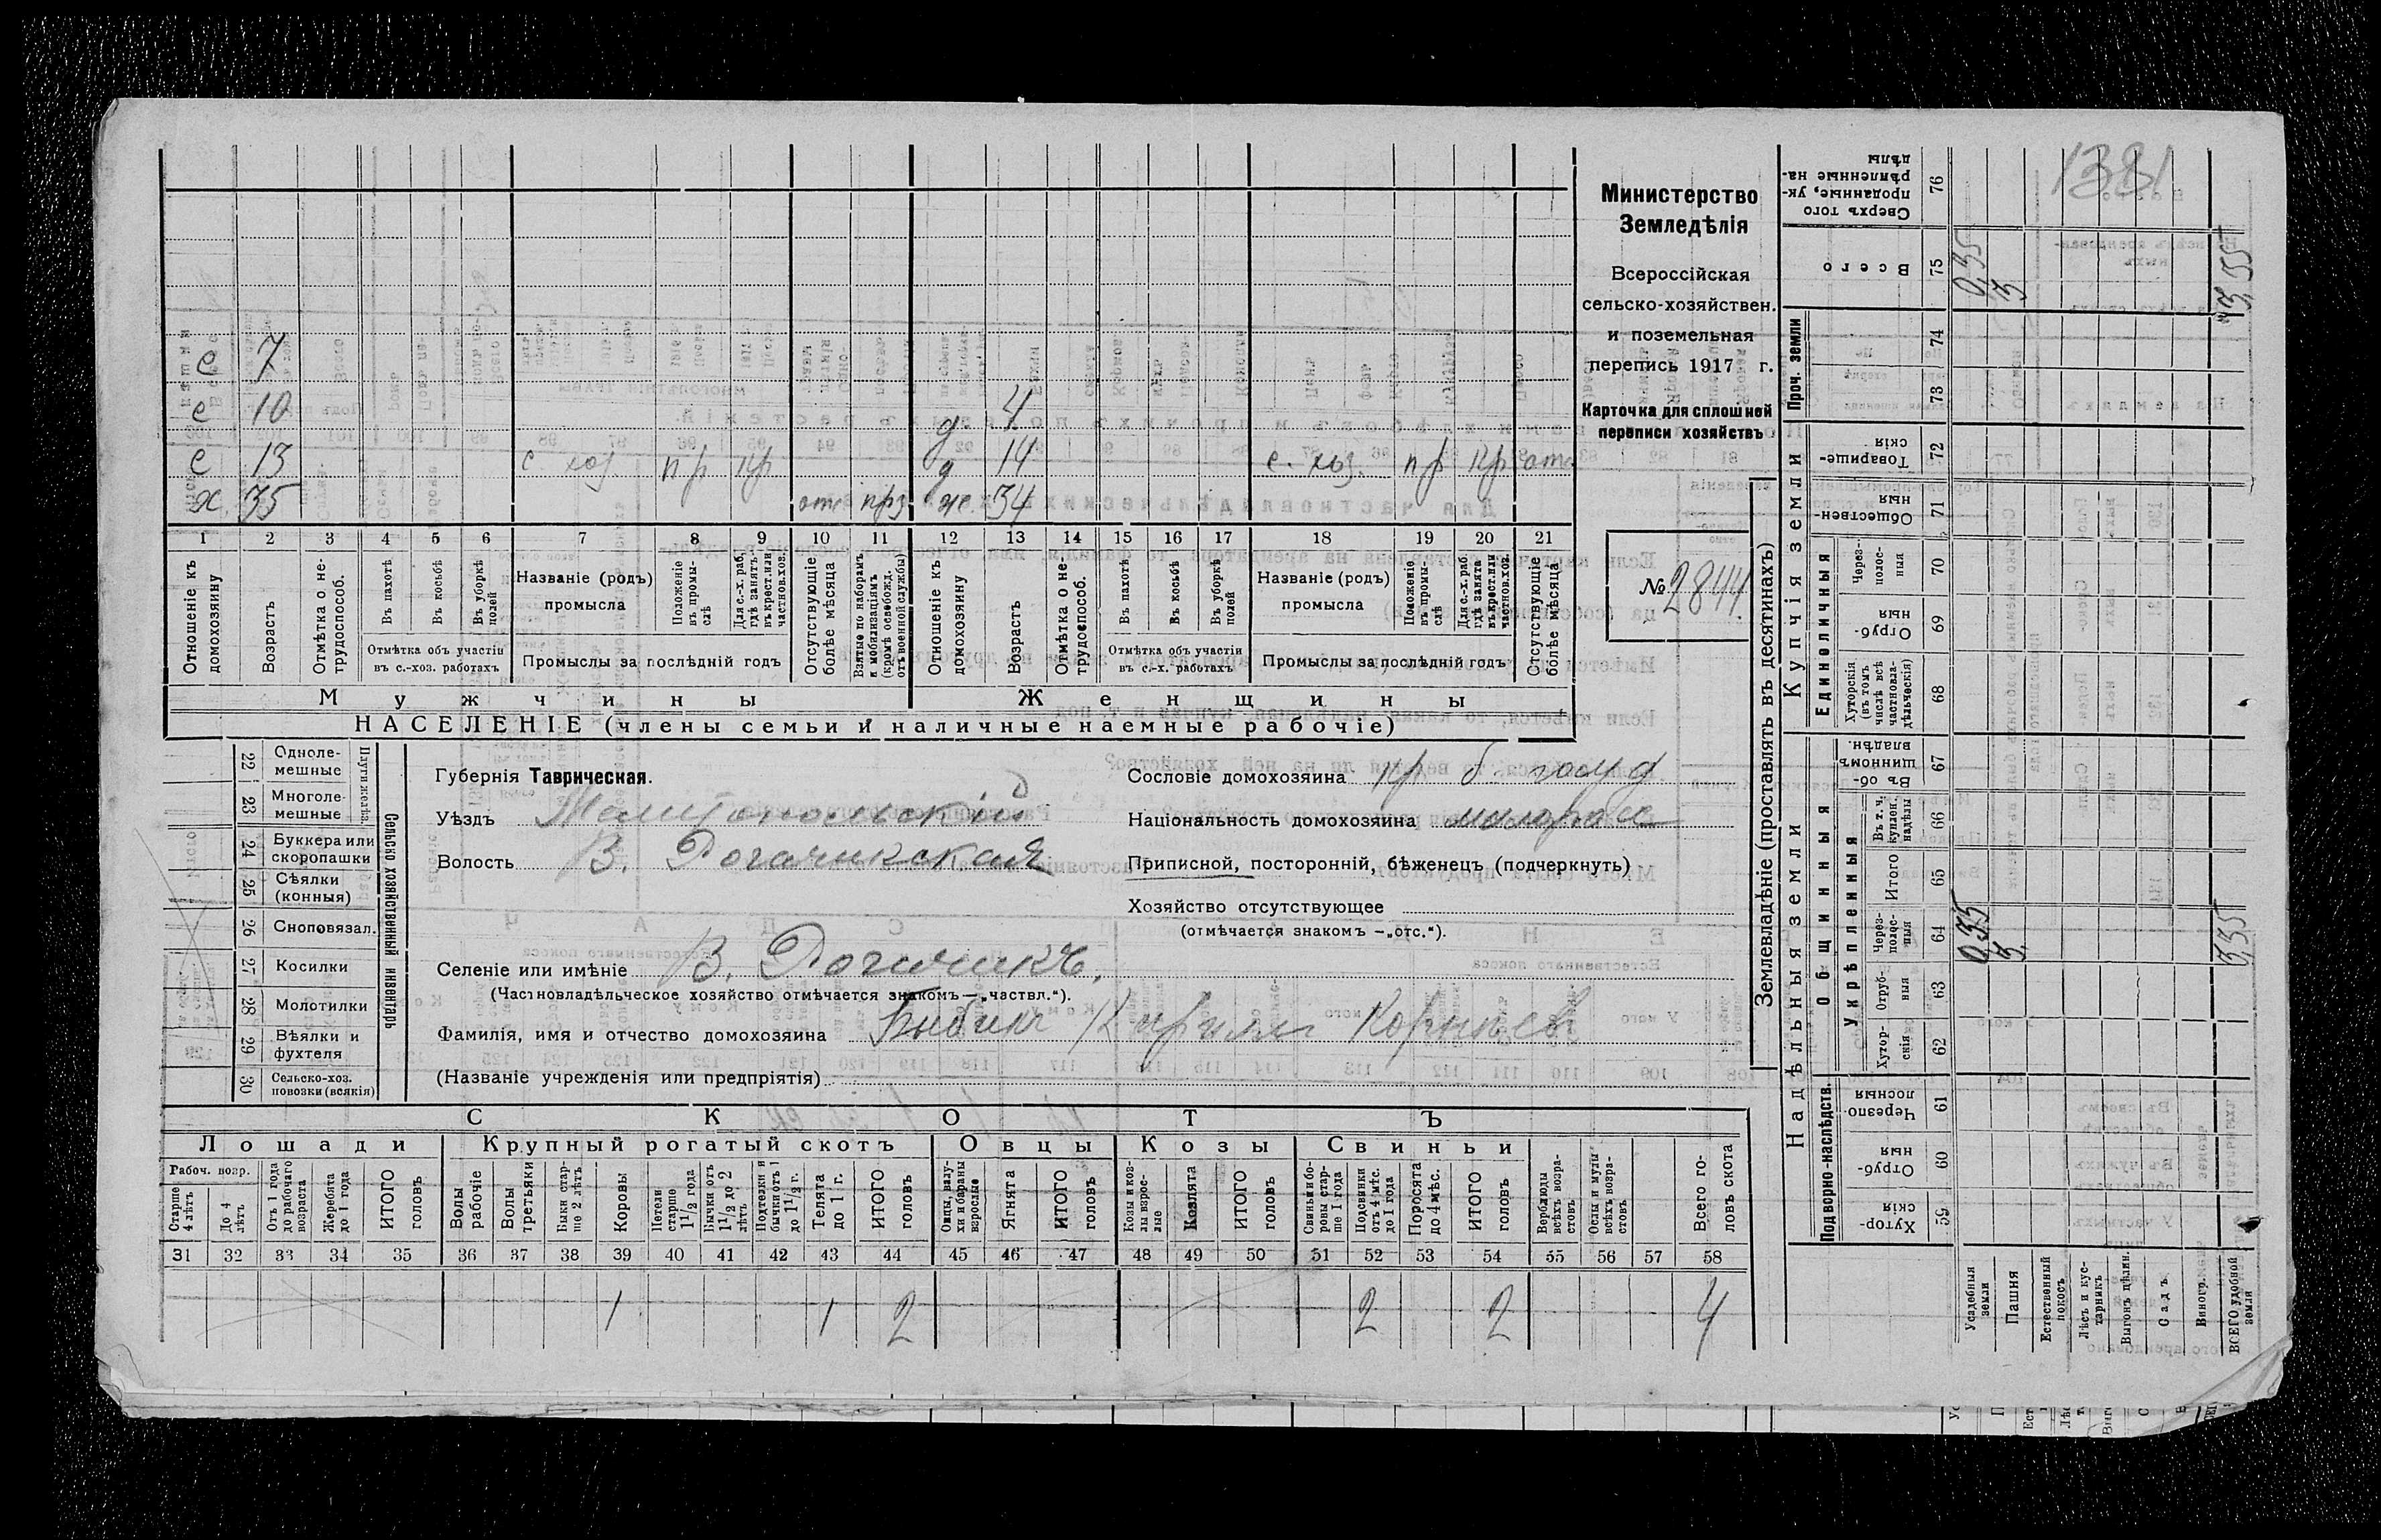 1381
Министерство
Земледѣлія
Всероссійская
сельско-хозяйствен.
и поземельная
перепись 1917 г.
Карточка для сплошной
переписи хозяйствъ
№ 2844
с 7
с 10 д 4
с 13 с. хоз пр кр д 14 с. хоз. пр кр отс.
х 35 отс прз же. 34
1 2 3 4 5 6 7 8 9 10 11 12 13 14 15 16 17 18 19 20 21
Отношеніе къ домохозяину
Возрастъ
Отмѣтка о не-трудоспособ.
Въ пахотѣ
Въ косьбѣ
Въ уборкѣ полей
Отмѣтка объ участіи въ с.-хоз. работахъ
Названіе (родъ) промысла
Положеніе въ промы-слѣ
Для с.-х. раб. гдѣ занятъ въ крест. или частнов. хоз.
Промыслы за послѣдній годъ
Отсутствующіе болѣе мѣсяца
Взятые по наборамъ и мобилизаціямъ (кромѣ освобожд. отъ военной службы)
Отношеніе къ домохозяину
Возрастъ
Отмѣтка о не-трудоспособ.
Въ пахотѣ
Въ косьбѣ
Въ уборкѣ полей
Отмѣтка объ участіи въ с.-х. работахъ
Названіе (родъ) промысла
Положеніе въ промы-слѣ
Для с.-х. раб. гдѣ занята въ крест. или частнов. хоз.
Промыслы за послѣдній годъ
Отсутствующіе болѣе мѣсяца
Мужчины Женщины
НАСЕЛЕНІЕ (члены семьи и наличные наемные рабочіе)
Сельско хозяйственный инвентарь
Плуги желѣз.
22 Одноле-мешные
23 Многоле-мешные
24 Буккера или скоропашки
25 Сѣялки (конныя)
26 Сноповязал.
27 Косилки
28 Молотилки
29 Вѣялки и фухтеля
30 Сельско-хоз. повозки (всякія)
Губернія Таврическая.
Уѣздъ Мелитопольскій
Волость В. Рогачикская
Сословіе домохозяина кр б. госуд
Національность домохозяина малоросс
Приписной, посторонній, бѣженецъ (подчеркнуть)
Хозяйство отсутствующее
(отмѣчается знакомъ —„отс.“).
Селеніе или имѣніе В. Рогачикъ.
(Частновладѣльческое хозяйство отмѣчается знакомъ—„частвл.“).
Фамилія, имя и отчество домохозяина Бибикъ Кирилл Корнѣев
(Названіе учрежденія или предпріятія)
СКОТЪ
Лошади Крупный рогатый скотъ Овцы Козы Свиньи
Рабоч. возр.
Старше 4 лѣтъ
До 4 лѣтъ
Отъ 1 года до рабочаго возраста
Жеребята до 1 года
ИТОГО головъ
Волы рабочіе
Волы третьяки
Быки стар-ше 2 лѣтъ
Коровы
Нетели старше 1 1/2 года
Бычки отъ 1 1/2 до 2 лѣтъ
Подтелки и бычки отъ 1 до 1 1/2 г.
Телята до 1 г.
ИТОГО головъ
Овцы, валу-хи и бараны взрослые
Ягнята
ИТОГО головъ
Козы и коз-лы взрос-лые
Козлята
ИТОГО головъ
Свиньи и бо-ровы стар-ше 1 года
Подсвинки отъ 4 мѣс. до 1 года
Поросята до 4 мѣс.
ИТОГО головъ
Верблюды всѣхъ возра-стовъ
Ослы и мулы всѣхъ возра-стовъ
Всего го-ловъ скота
31 32 33 34 35 36 37 38 39 40 41 42 43 44 45 46 47 48 49 50 51 52 53 54 55 56 57 58
1 1 2 2 2 4
Землевладѣніе (проставлять въ десятинахъ)
Надѣльныя земли Купчія земли Проч. земли
Подворно-наслѣдств.
Общинныя
Укрѣпленныя
Единоличныя
Хутор-скія 59
Отруб-ныя 60
Черезпо-лосныя 61
Хутор-скія 62
Отруб-ныя 63
Через-полос-ныя 64
Итого 65
Въ т. ч. куплен. надѣлы 66
Въ об-щинномъ владѣн. 67
Хуторскія (въ томъ числѣ всѣ частновла-дѣльческія) 68
Отруб-ныя 69
Через-полос-ныя 70
Обществен-ныя 71
Товарище-скія 72
73
74
Всего 75
Сверхъ того проданные, ук-рѣпленные на-дѣлы 76
Усадебныя земли 0,35 0,35
Пашня 3 3
Естественный покосъ
Лѣсъ и кус-тарникъ
Выгонъ цѣлин.
Садъ
Виногр.
ВСЕГО удобной земли 3,35 3,35